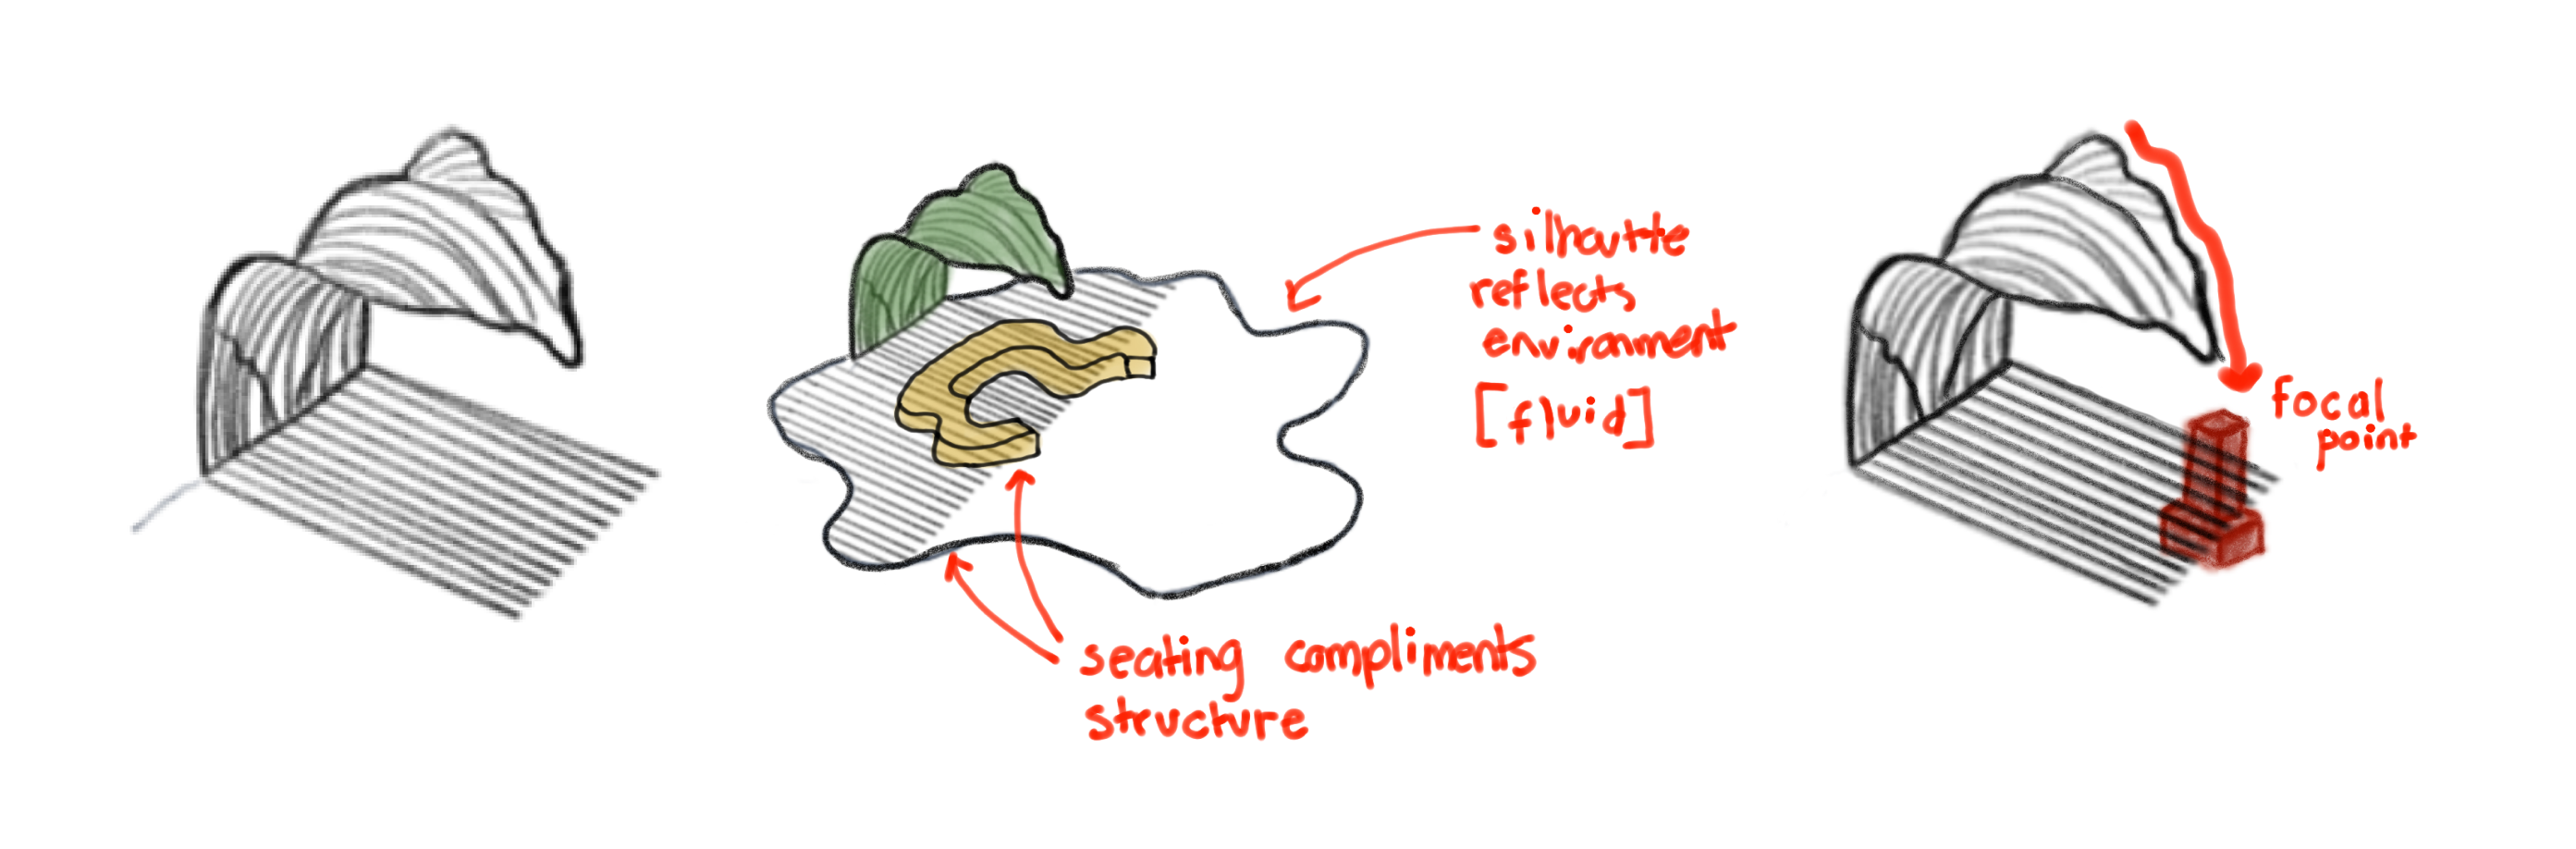 silhoutte
reflects
environment
[fluid]
seating compliments
structure
focal
point